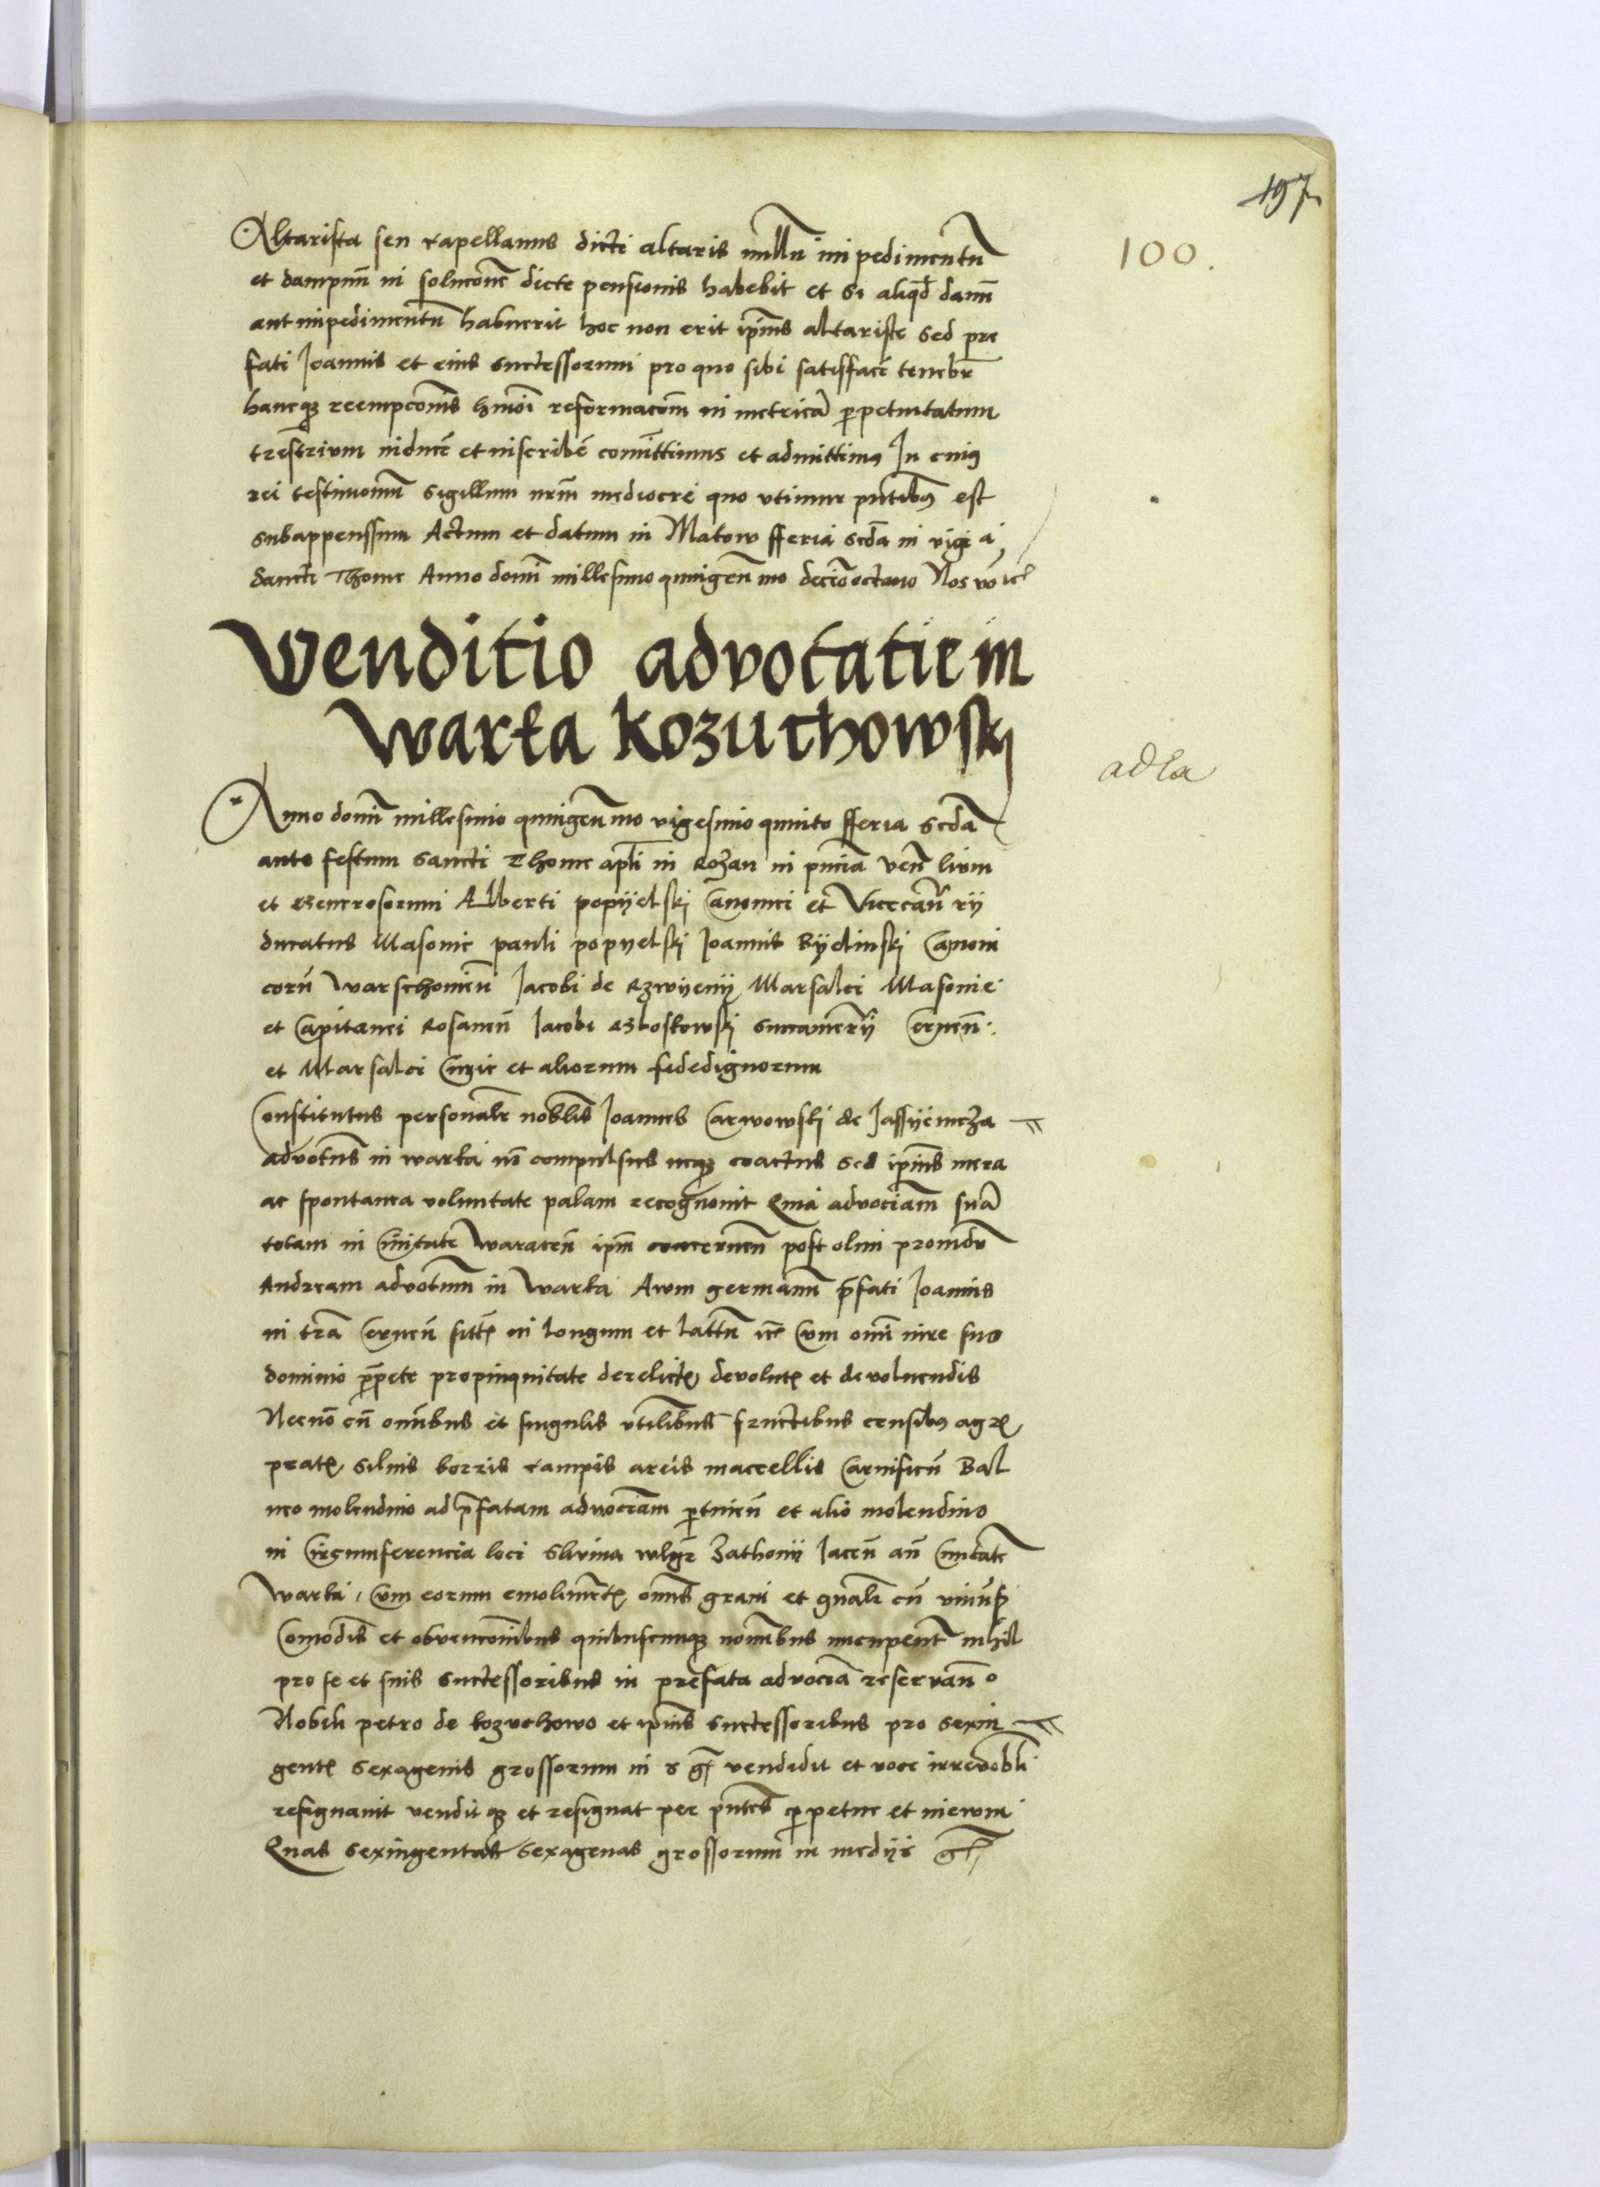 197
100.
Altarista seu capellanus dicti altaris nullũ impedimentũ
et dampnũ in solucõe dicte pensionis habebit et si aliqđ damñ
aut impedimentũ habuerit hoc non erit ipĩus altariste sed pre
fati Joannis et eius successorum pro quo sibi satisfacẽ tenebr̃
hancqȝ reempcõis hmõi reformacõm in metricã perpetuitatum
trẽstrium inducẽ et inscribẽ comĩttimus et admittimȝ In cuiȝ
rei testimoniũ sigillum nrm̃ mediocre quo utimur pñtibȝ est
subappenssum Actum et datum in Makow fferia scđa in vigi a
Sancti Thome Anno domĩ millesimo quingeñ mo decĩooctavo Nos
Venditio advocatie in
Warka Kozuchowski
adla
Anno domĩ millesimo quingeñ mo vigesimo quinto fferia scđa
ante festum Sancti Thome apłi in Rozan in pñcia veñ lium
et Generosorum Alberti popyelski Canonici et Vicecañ rij
ducatus Masovie pauli popyelski Joannis Byelinski Canoni
corũ Warschovieñ Jacobi de Gzwyeny Marsalci Masovie
et Capitanei Rosaneñ Jacobi Gloskowski succamerrij Cernen.
et Marsalci Curie et aliorum fidedignorum
Constitutus personalr̃ nobl̃is Joannes Carwowski de Jassyencza
advotus in warka nõ compulsus neqȝ coactus sed ipĩus mera
ac spontanea voluntate palam recognovit Quia advociam̃ suã
totam in Civitate Waraceñ ipm̃ concerneñ post olim providũ
Andream advotum in Warka Avum germanũ p̃fati Joannis
in trã Cerneñ sitt̃ in longum et lattũ Cum omi iure suo
dominio p̃pete propinquitate derelict̃ devolut̃ et devoluendis
Necnõ cũ omĩbus et singulis utilibus fructibus censibȝ agr̃
prat̃ silvis borris campis areis maccellis Carnificũ Bal
neo molendino ad p̃fatam advociam̃ p̃tineñ et alio molendino
in Circumferencia loci Slivina wlgr̃ Zathonij Jaceñ añ Civitatẽ
Warka Cum eorum emoliment̃ omĩs grani et gñalr̃ cũ uniṽsȝ
Comodis et obvencionibus quibuscumqȝ nomĩbus nuncupent̃ nihil
pro se et suis successoribus in prefata advocia reservañ o
Nobili petro de kozuchowo et ipĩus successoribus pro sexin
gent̃ sexagenis grossorum in vendidit et voce irrevobli
resignavit vendit qȝ et resignat per p̃ntes p̃petue et in evum
Quas sexingentas sexagenas grossorum in medijs g